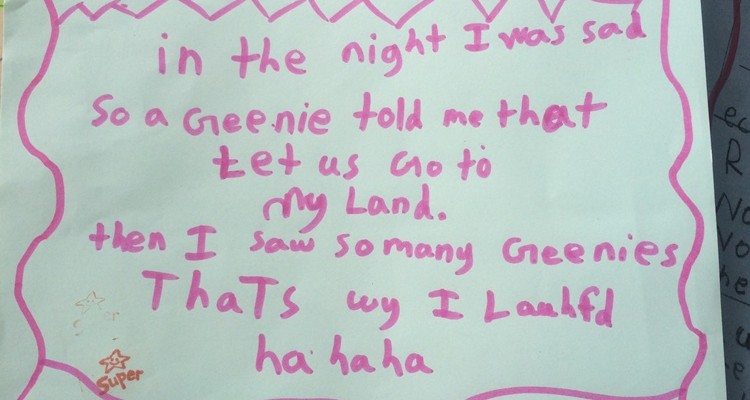 in the night I was sad
So a Geenie told me that
Let us Go to
My Land.
then I saw so many Geenies
ThaTs wy I Lauhfd
ha ha ha
Super